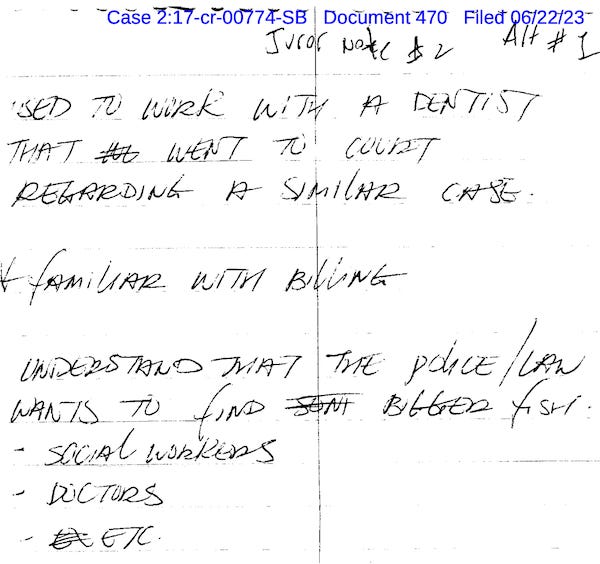 Case 2:17-cr-00774-SB Document 470 Filed 06/22/23
Juror Note #2 Alt #1
USED TO WORK WITH A DENTIST
THAT WENT TO COURT
REGARDING A SIMILAR CASE.
FAMILIAR WITH BILLING
UNDERSTAND THAT THE POLICE/LAW
WANTS TO FIND SENT BIGGER FISH.
- SOCIAL WORKERS
- DOCTORS
- ETC.